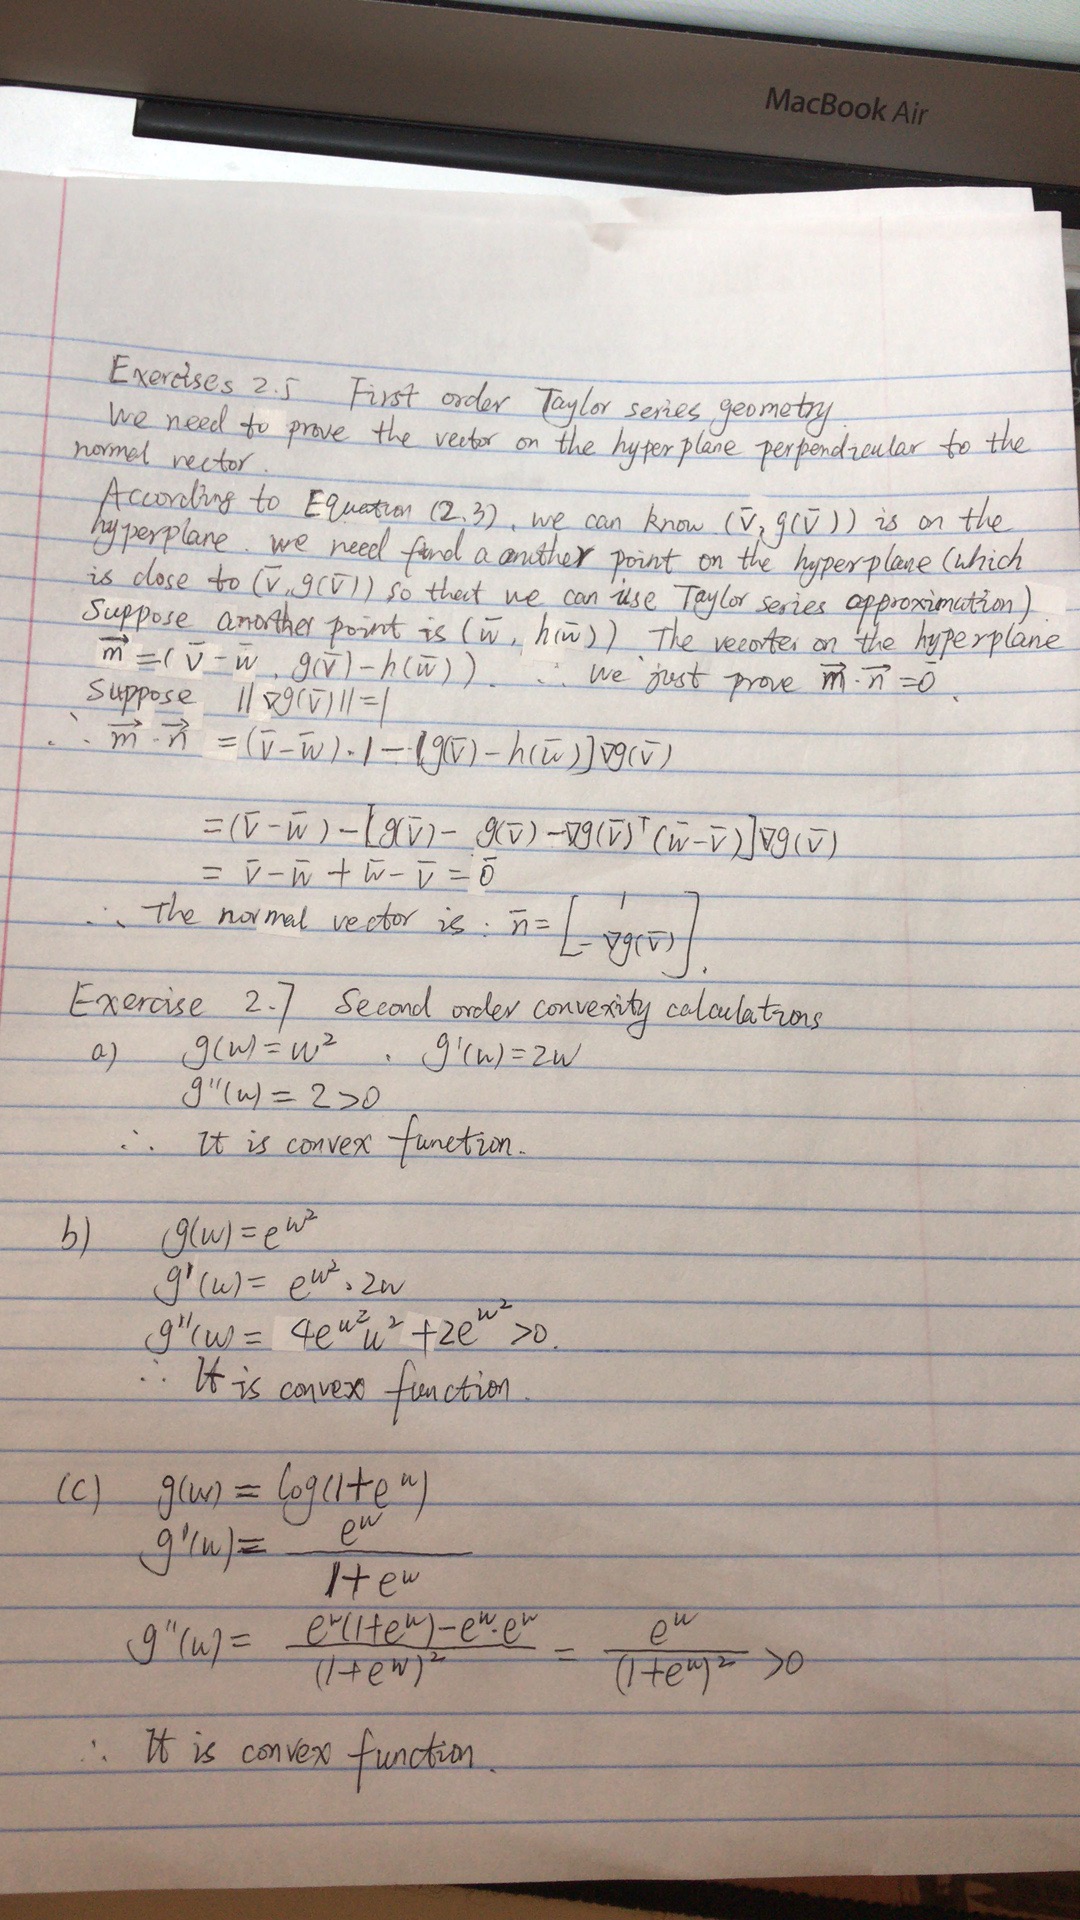 MacBook Air
Exercises 2.5 First order Taylor series geometry.
We need to prove the vector on the hyperplane perpendicular to the
normal vector.
According to Equation (2.3), we can know (v̄, g(v̄)) is on the
hyperplane. we need find a another point on the hyperplane (which
is close to (v̄, g(v̄)) so that we can use Taylor series approximation)
Suppose another point is (w̄, h(w̄)) The vecorter on the hyperplane
m⃗ = (v̄ - w̄, g(v̄) - h(w̄)). ∴ we just prove m⃗ · n⃗ = 0̄.
Suppose ||∇g(v̄)|| = 1
∴ m⃗ · n⃗ = (v̄ - w̄) · 1 - [g(v̄) - h(w̄)]∇g(v̄)
= (v̄ - w̄) - [g(v̄) - g(v̄) - ∇g(v̄)ᵀ(w̄ - v̄)]∇g(v̄)
= v̄ - w̄ + w̄ - v̄ = 0̄
∴ The normal vector is : n̄ = [1
-∇g(v̄)].
Exercise 2.7 Second order convexity calculations
a) g(w) = w² . g'(w) = 2w
g''(w) = 2 > 0
∴ It is convex function.
b) g(w) = e^w²
g'(w) = e^w² · 2w
g''(w) = 4e^w² w² + 2e^w² > 0.
∴ It is convex function.
(c) g(w) = log(1+e^w)
g'(w) = e^w / 1+e^w
g''(w) = e^w(1+e^w) - e^w · e^w / (1+e^w)² = e^w / (1+e^w)² > 0
∴ It is convex function.